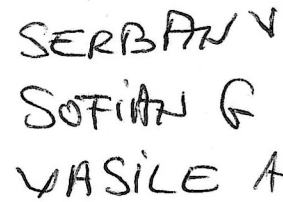 SERBAN V
SOFiAN G
VASiLE A